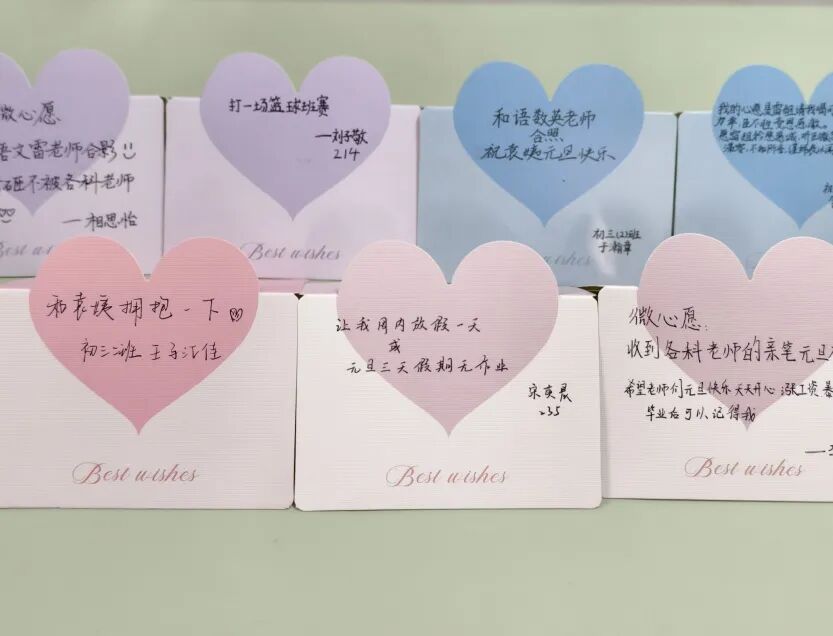 微心愿
语文雷老师合影
不被各科老师
—相思怡
Best wishes
打一场篮球班赛
—刘子敬
214
Best wishes
和语数英老师
合照
祝袁姨元旦快乐
初三(2)班
于瀚章
Best wishes
我的心愿是雷姐请我喝
和袁姨拥抱一下
初三二班 王子汇佳
Best wishes
让我周内放假一天
或
元旦三天假期无作业
宋奕晟
235
Best wishes
微心愿:
收到各科老师的亲笔元旦
希望老师们元旦快乐 天天开心 涨工资
毕业后可以记得我
Best wishes